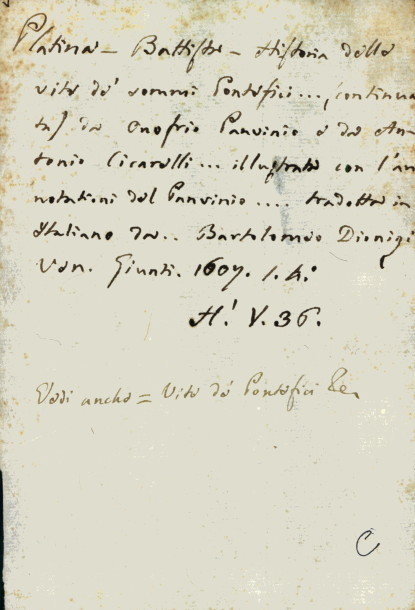 Platina - Battista - Historia delle
vite de' sommi Pontefici..., (continua
ta) da Onofrio Panvinio e da An-
tonio Cicarelli... illustrata con l'an
notationi del Panvinio.... tradotta in
Italiano da.. Bartolomeo Dionigi
Ven. Giunti. 1607. 1. 4.°
H.' V. 36.
Vedi anche = Vite de' Pontefici
C